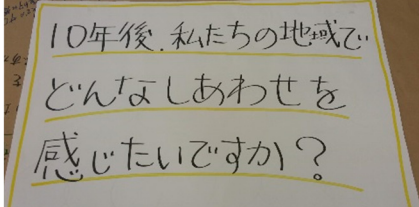 10年後、私たちの地域で
どんなしあわせを
感じたいですか？